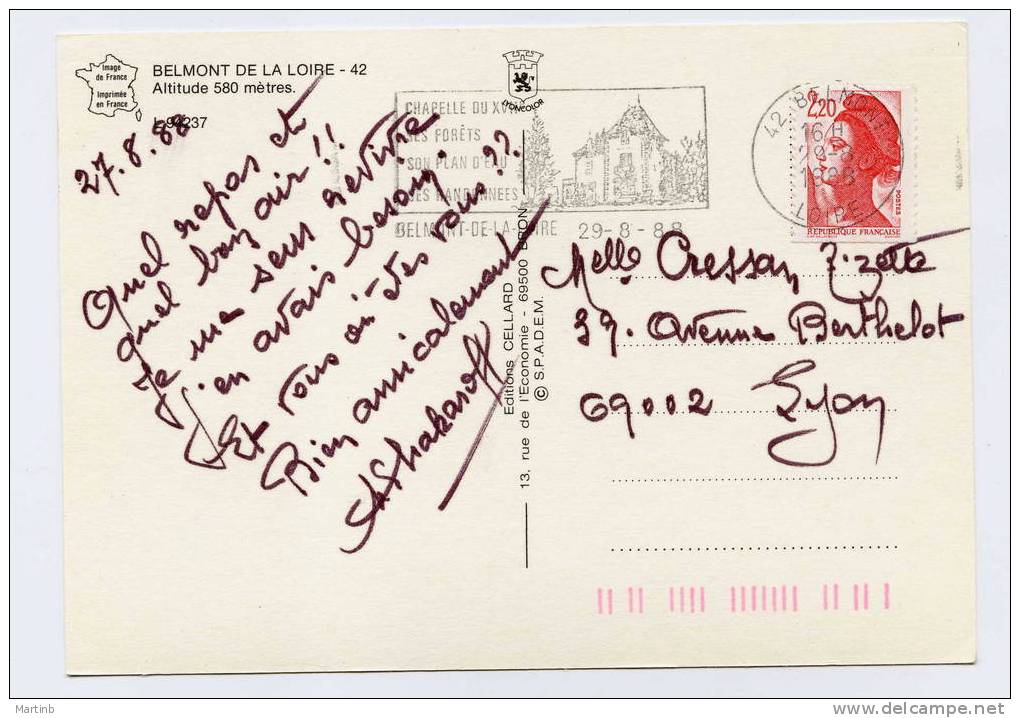 Image
de France
Imprimée
en France
BELMONT DE LA LOIRE - 42
Altitude 580 mètres.
L 94237
27.8.88
Quel repas et
quel bon air !!
Je me sens revivre
j'en avais besoin.
Et vous où en êtes vous ??
Bien amicalement
LYONCOLOR
CHAPELLE DU XVII
SES FORÊTS
SON PLAN D'EAU
SES RANDONNEES
BELMONT-DE-LA-LOIRE 29-8-88
42 BELMONT
16 H
29-8
1988
LOIRE
2,20
POSTES
REPUBLIQUE FRANÇAISE
Editions CELLARD
13, rue de l'Economie - 69500 BRON
© S.P.A.D.E.M.
Melle Cressan Zizette
39. Avenue Berthelot
69002 Lyon
Martinb
delcampe.net